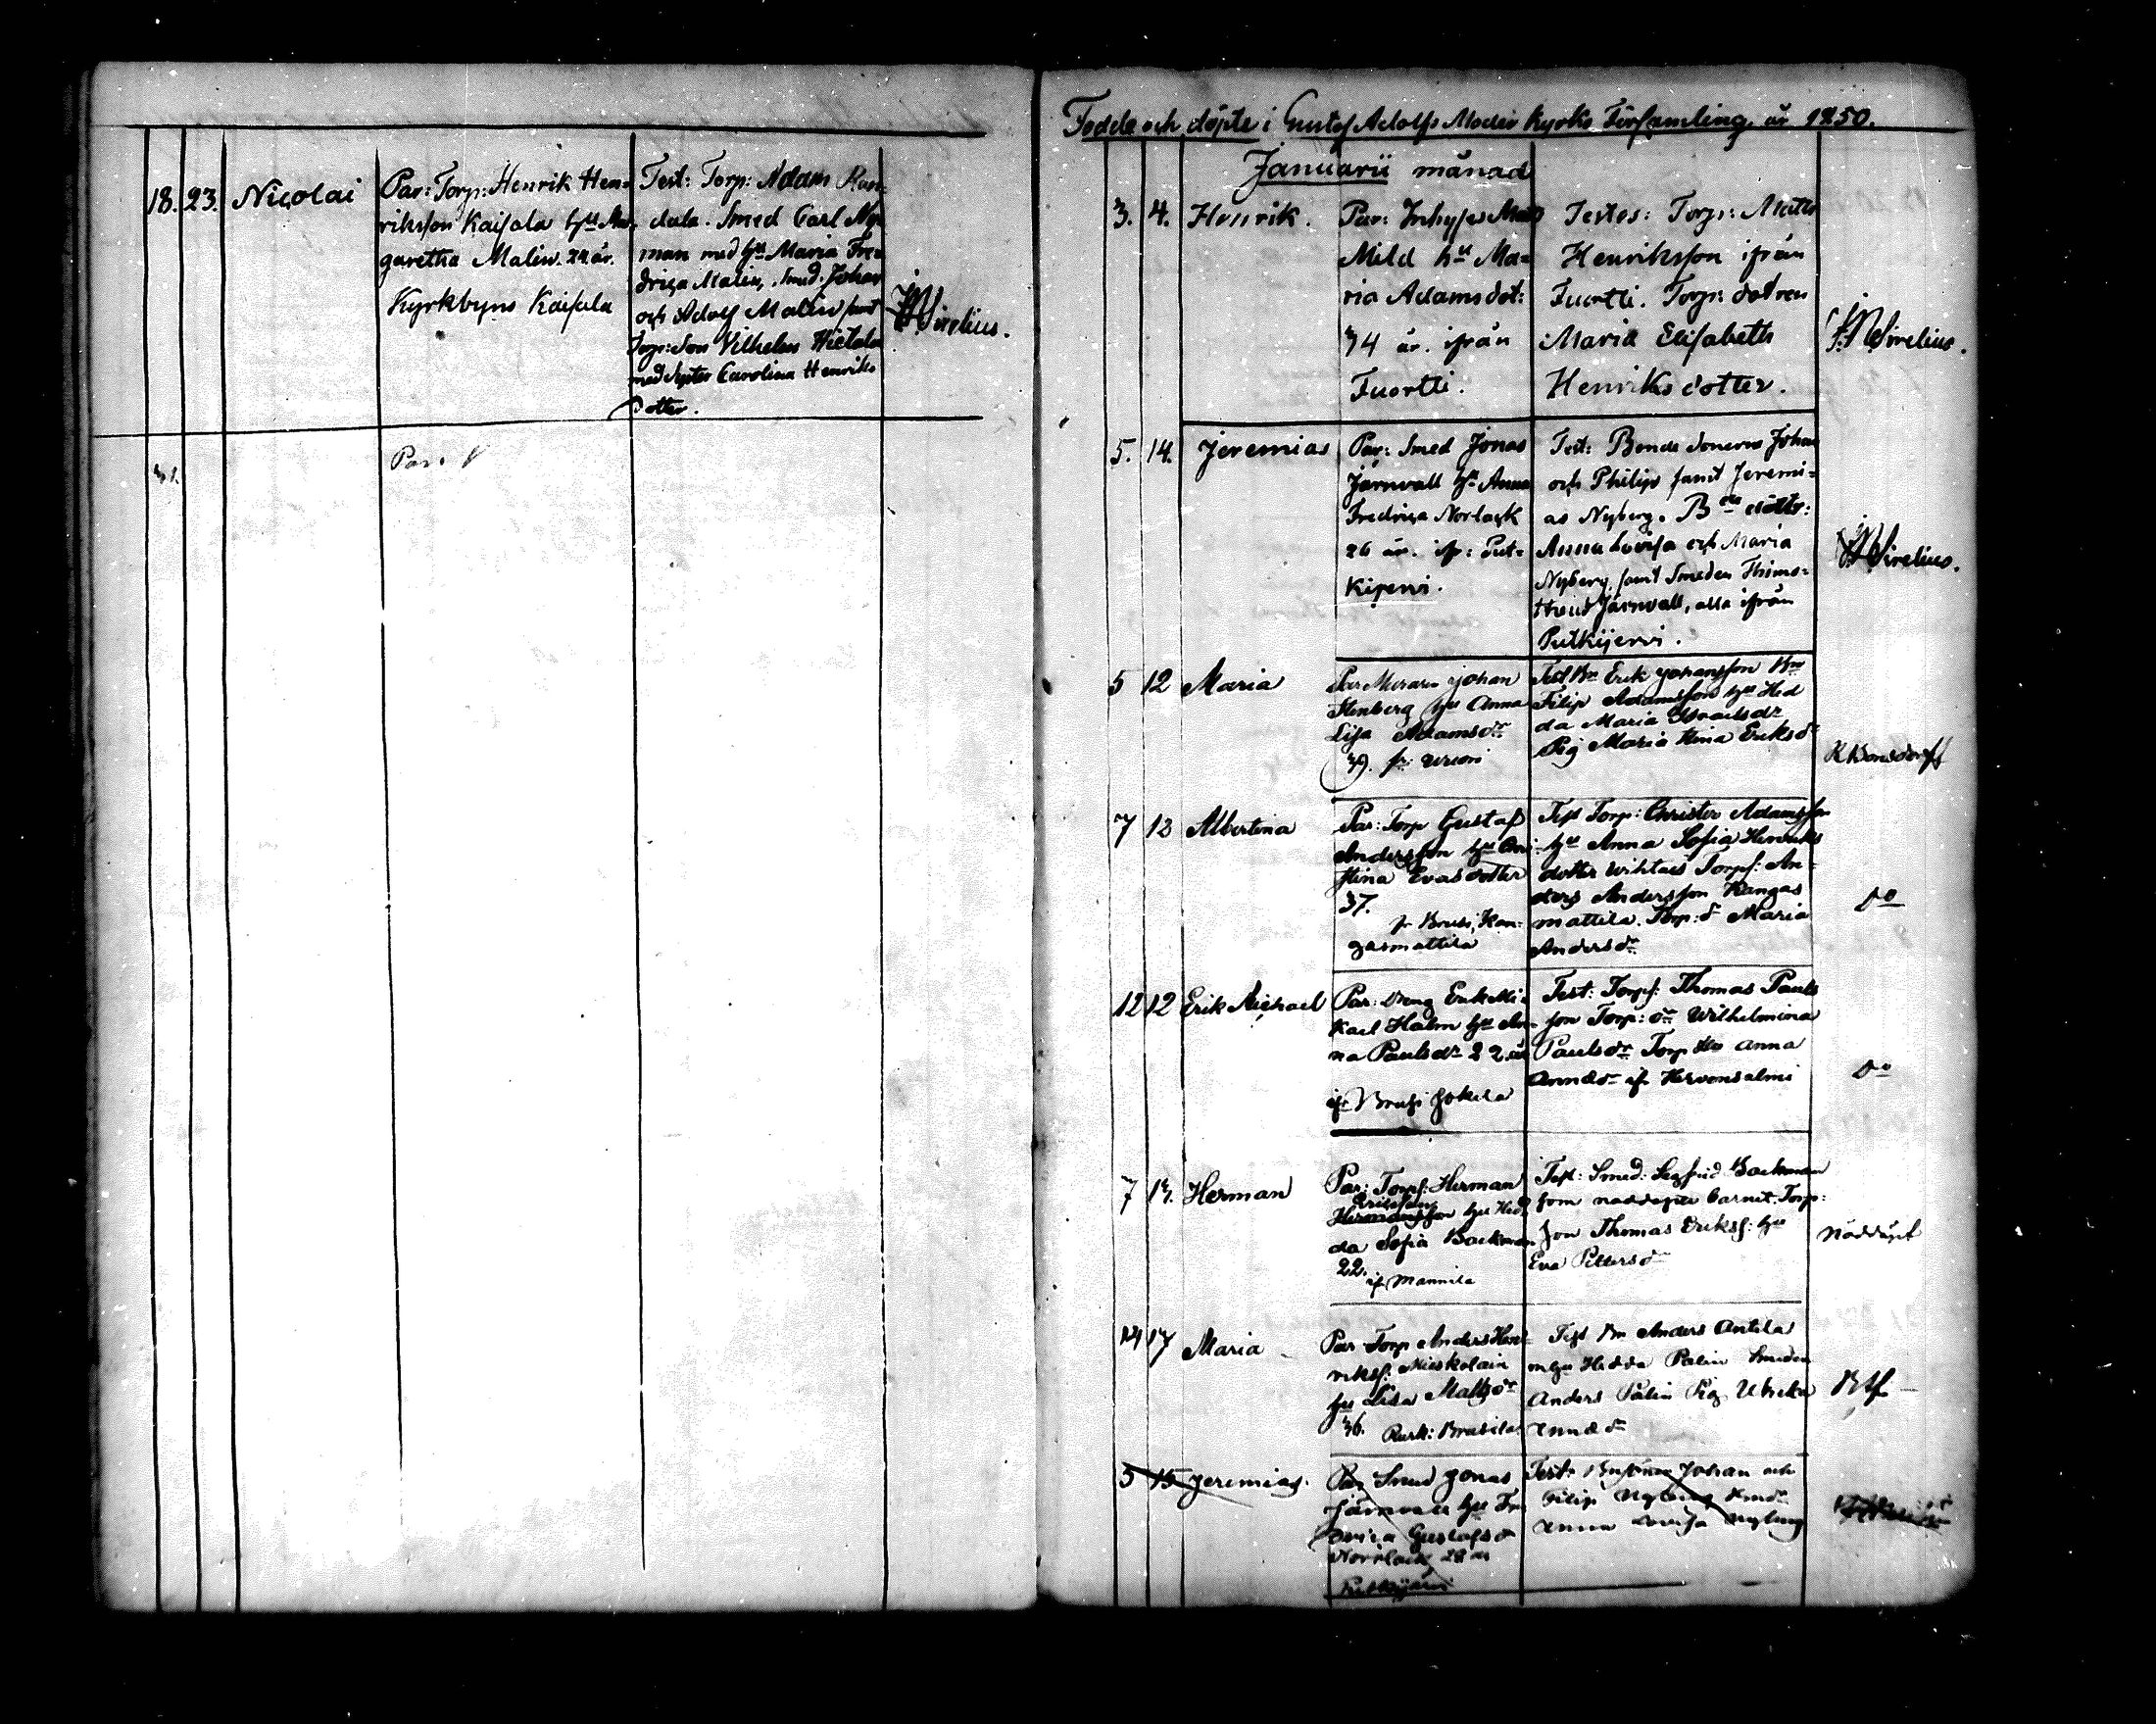 18. 23. Nicolai
Par: Torp: Henrik Hen=
riksson Kaisala hu Mar=
garetha Malin. 22 år.
Kyrkbyns Kaisala
Test: Torp: Adam Ran=
dala. Smed Carl Ny=
man med hu Maria Fre=
drica Malin, Smed: Johan
och Adolf Malin samt
Torp: Son Vilhelm Hietala
med Syster Carolina Henriks
dotter.
Sirelius.
31.
Par:
Födde och döpte i Gustaf Adolfs Moder kyrko Församling år 1850.
Januarii månad
3. 4. Henrik.
Par: Inhyses Matts
Mild hu Ma=
ria Adamsdot:
34 år. ifrån
Fuortti.
Testes: Torp: Matts
Henriksson ifrån
Fuortti. Torp: dotren
Maria Elisabeth
Henriksdotter.
Sirelius.
5. 14. Jeremias
Par: Smed Jonas
Järnvall hu Anna
Fredrica Norlack
26 år. ifr: Put=
kijervi.
Test: Bonde sönerne Johan
och Philip samt Jeremi=
as Nyberg. Bde döttr:
Anna Lovisa och Maria
Nyberg, samt Smeden Thimo=
theus Järnvall, alla ifrån
Putkijervi.
Sirelius.
5 12 Maria
Par Murare Johan
Stenberg hu Anna
Lisa Adamsdr
39. fr:
Test Bn Erik Johansson Bn
Filip Adamsson hu Hed
da Maria Israelsdr
Pig Maria Stina Eriksdr
K Bonsdorff
7 12 Albertina
Par: Torp Gustaf
Andersson hu
Stina Evasdotter
37.
fr Brusi, Kan=
gasmattila
Test Torp: Christer Adamsson
hu Anna Sofia Henriks
dotter Torps: An=
ders Andersson Kangas
mattila. Torp: d Maria
Andersdr
do
12 12 Erik Michael
Par: Dreng Erik Mi=
kael Holm hu An=
na Paulsdr 22 år
ifr Brusi Jokela
Test: Torps: Thomas Pauls
son Torp: dr Wilhelmina
Paulsdr Torp Hu Anna
Annæd ifr Hervonsalmi
do
7 17. Herman
Par: Torps: Herman
Eriksson
Hermansson hu Hed
da Sofia Backman
22.
if Mannila
Test: Smed: Segfrid Backman
som nöddöpte barnet. Torp:
son Thomas Erikss: hu
Eva Pettersdr
Nöddöpt
14 17 Maria
Par Torp Anders Hen=
rikss: Nieskolain
hu Lisa Mattsdr
36. Park: Brasila.
Test Bn Anders Antila
mhu Hedda Palin Smeden
Anders Palin Pig Ulrika
Annæ dr
5 15 Jeremias.
Par Smed Jonas
Järnvall hu Fre
drica Gustafsd
Norrlack 28 år
Putkijärvi
Test: Bnsöner Johan och
Filip Nyberg
Anna Lovisa Nyberg